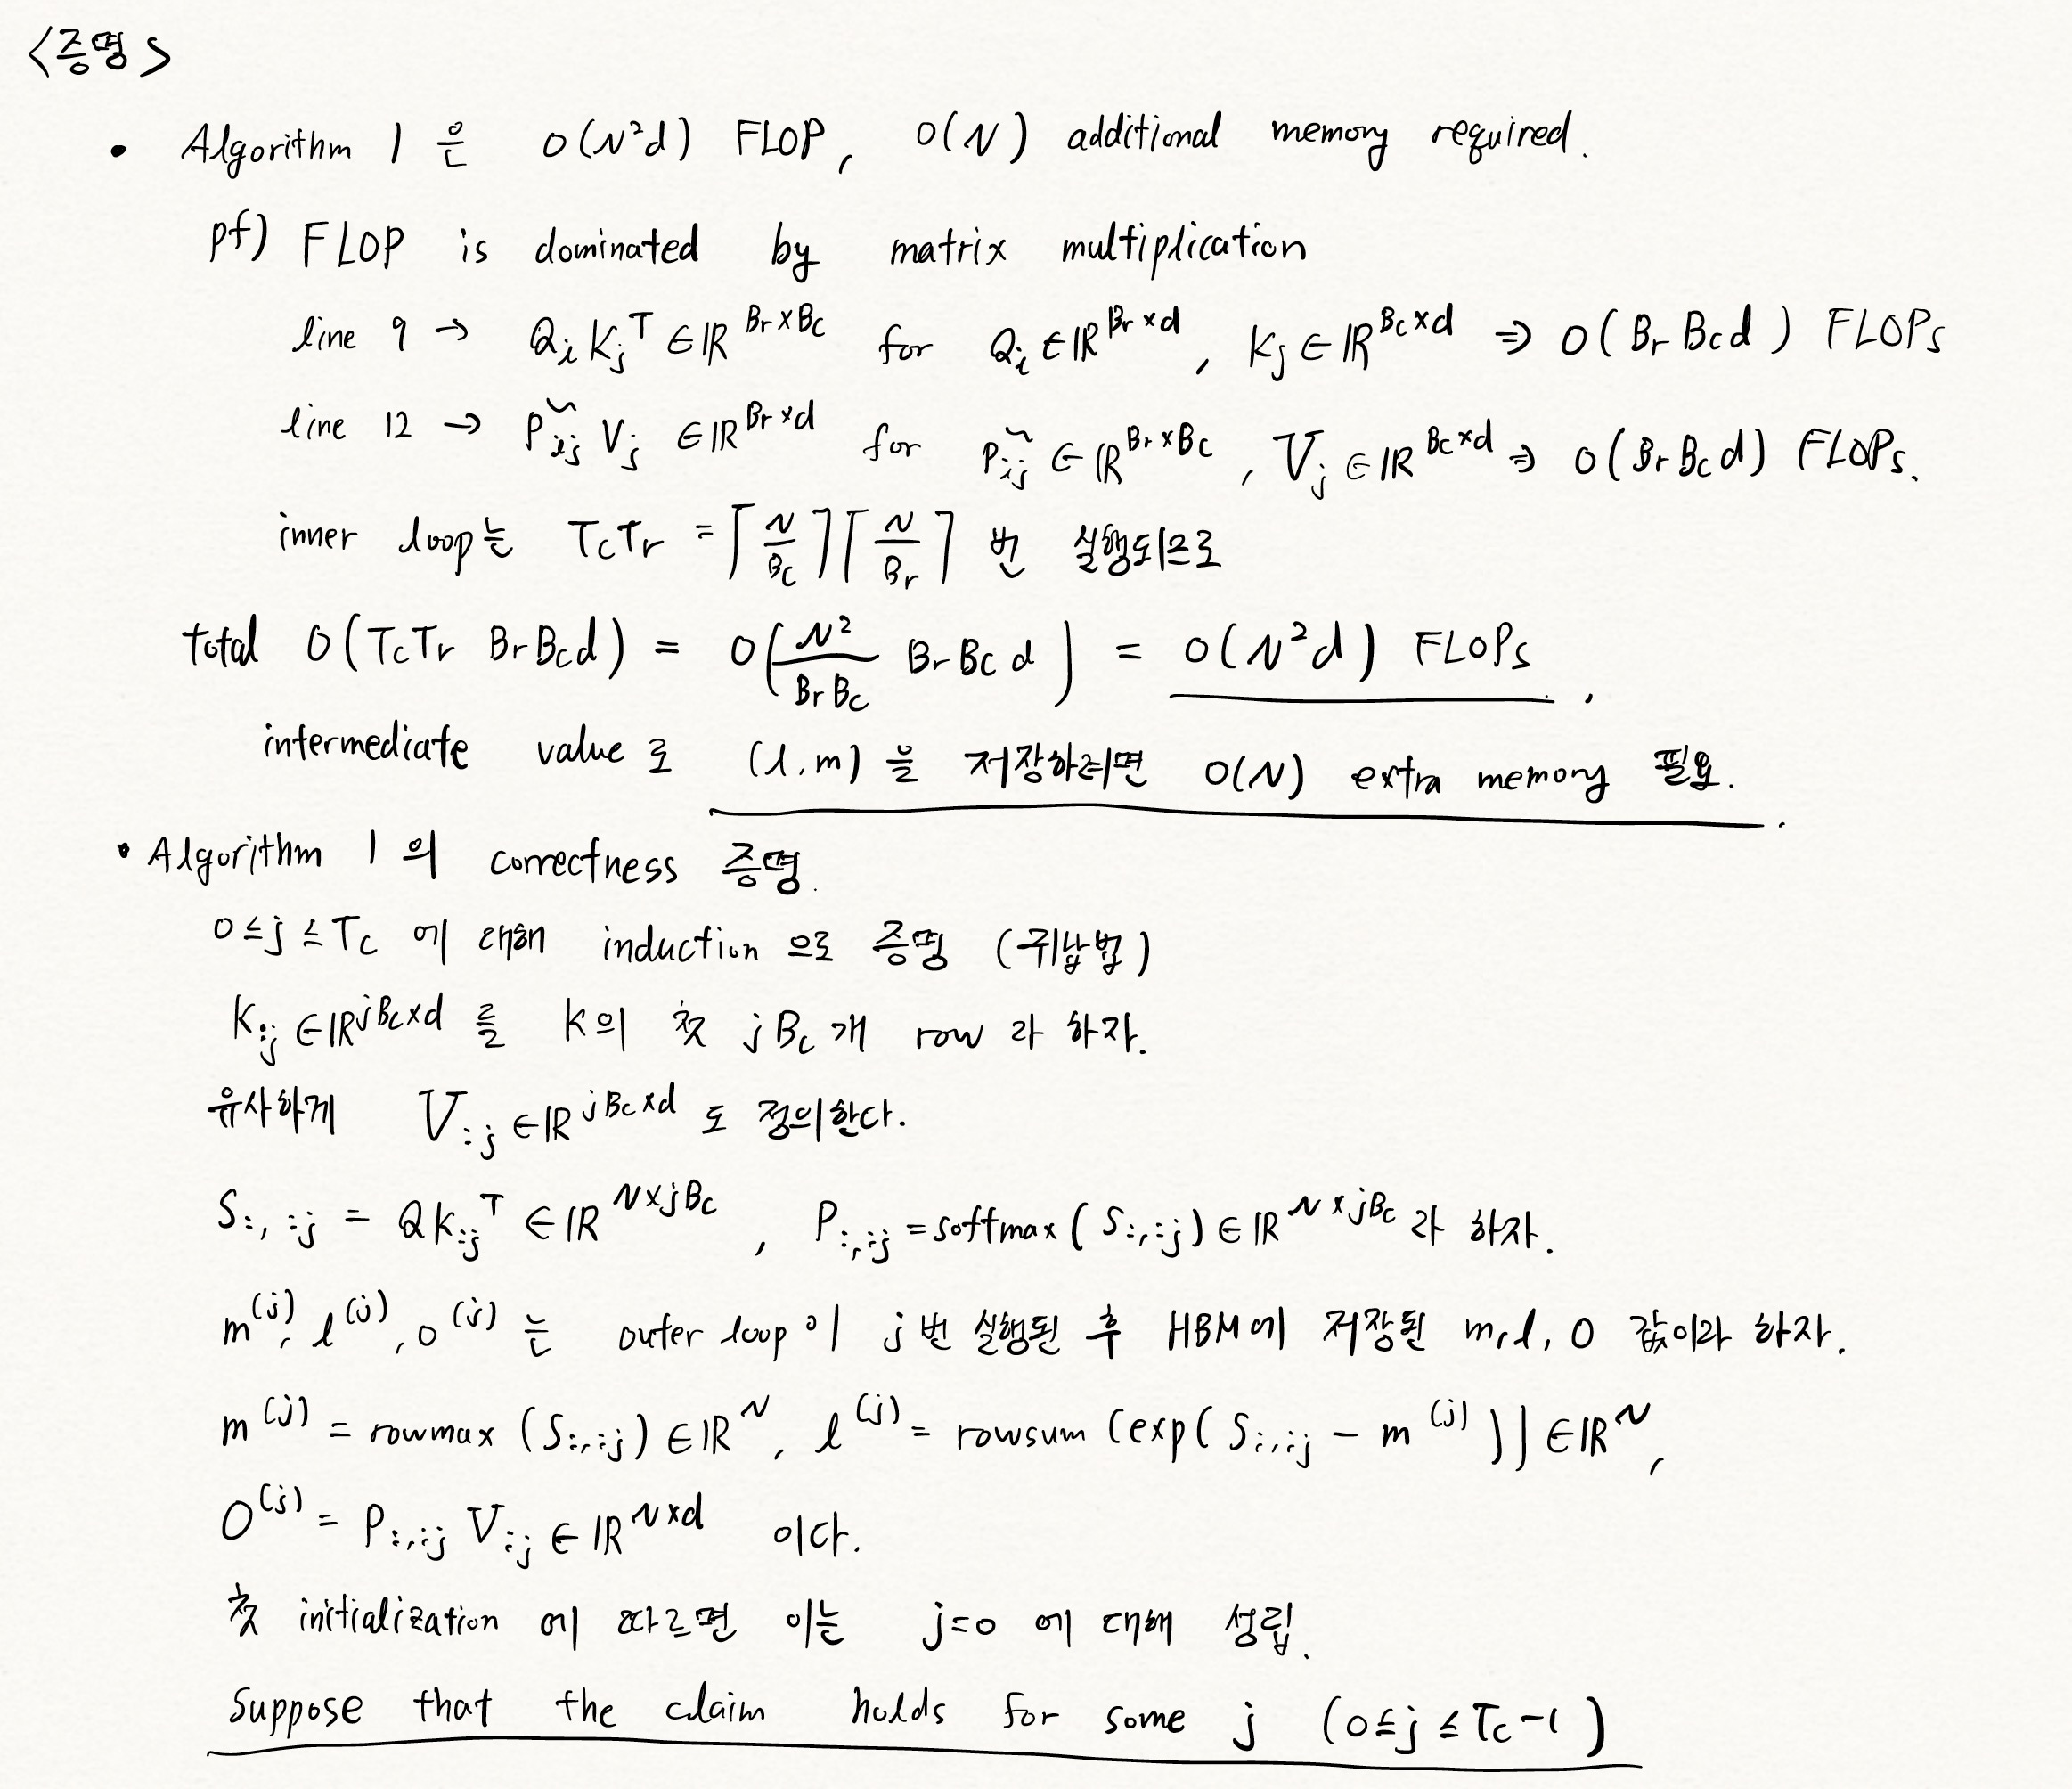 <증명>
• Algorithm 1 은 O(N²d) FLOP, O(N) additional memory required.
pf) FLOP is dominated by matrix multiplication
line 9 → Q_i K_j^T ∈ ℝ^{Br×Bc} for Q_i ∈ ℝ^{Br×d}, K_j ∈ ℝ^{Bc×d} ⇒ O(Br Bc d) FLOPs
line 12 → P̃_ij V_j ∈ ℝ^{Br×d} for P̃_ij ∈ ℝ^{Br×Bc}, V_j ∈ ℝ^{Bc×d} ⇒ O(Br Bc d) FLOPs.
inner loop는 TcTr = ⌈N/Bc⌉⌈N/Br⌉ 번 실행되므로
total O(TcTr BrBcd) = O(N²/(BrBc) BrBc d) = O(N²d) FLOPs.
intermediate value로 (l, m)을 저장하려면 O(N) extra memory 필요.
• Algorithm 1의 correctness 증명.
0≤j≤Tc 에 대해 induction으로 증명 (귀납법)
K_{:j} ∈ ℝ^{jBc×d} 를 K의 첫 jBc개 row 라 하자.
유사하게 V_{:j} ∈ ℝ^{jBc×d} 도 정의한다.
S_{:,:j} = QK_{:j}^T ∈ ℝ^{N×jBc}, P_{:,:j} = softmax(S_{:,:j}) ∈ ℝ^{N×jBc} 라 하자.
m^{(j)}, l^{(j)}, O^{(j)} 는 outer loop이 j번 실행된 후 HBM에 저장된 m, l, O 값이라 하자.
m^{(j)} = rowmax(S_{:,:j}) ∈ ℝ^N, l^{(j)} = rowsum(exp(S_{:,:j} - m^{(j)})) ∈ ℝ^N,
O^{(j)} = P_{:,:j} V_{:j} ∈ ℝ^{N×d} 이다.
첫 initialization에 따르면 이는 j=0 에 대해 성립.
Suppose that the claim holds for some j (0≤j≤Tc-1)